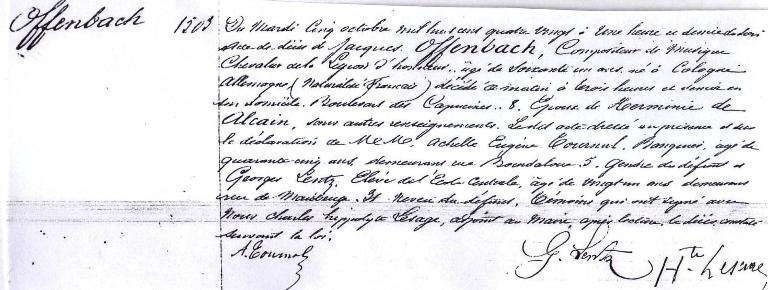 Offenbach 1503 Du Mardi Cinq octobre mil huit cent quatre vingt à Une heure et demie du soir
Acte de décès de Jacques Offenbach, Compositeur de Musique
Chevalier de la Légion d'honneur, âgé de soixante un ans né à Cologne
Allemagne (Naturalisé Français) décédé ce matin à trois heures et demie en
son domicile Boulevard des Capucines 8, Epoux de Herminie de
Alcain, sans autres renseignements. Ledit acte dressé en présence et sur
la déclaration de M.M. Achille Eugène Tournal, Banquier, âgé de
quarante cinq ans, demeurant rue Bourdaloue 5. Gendre du défunt et
Georges Lentz, Elève de l'Ecole Centrale, âgé de vingt un ans demeurant
rue de Maubeuge. 51 Neveu du défunt, Témoins qui ont signé avec
Nous Charles hippolyte Lesage, adjoint au Maire, après lecture, le décès constaté
suivant la loi.
A. Tournal G. Lentz Hte Lesage